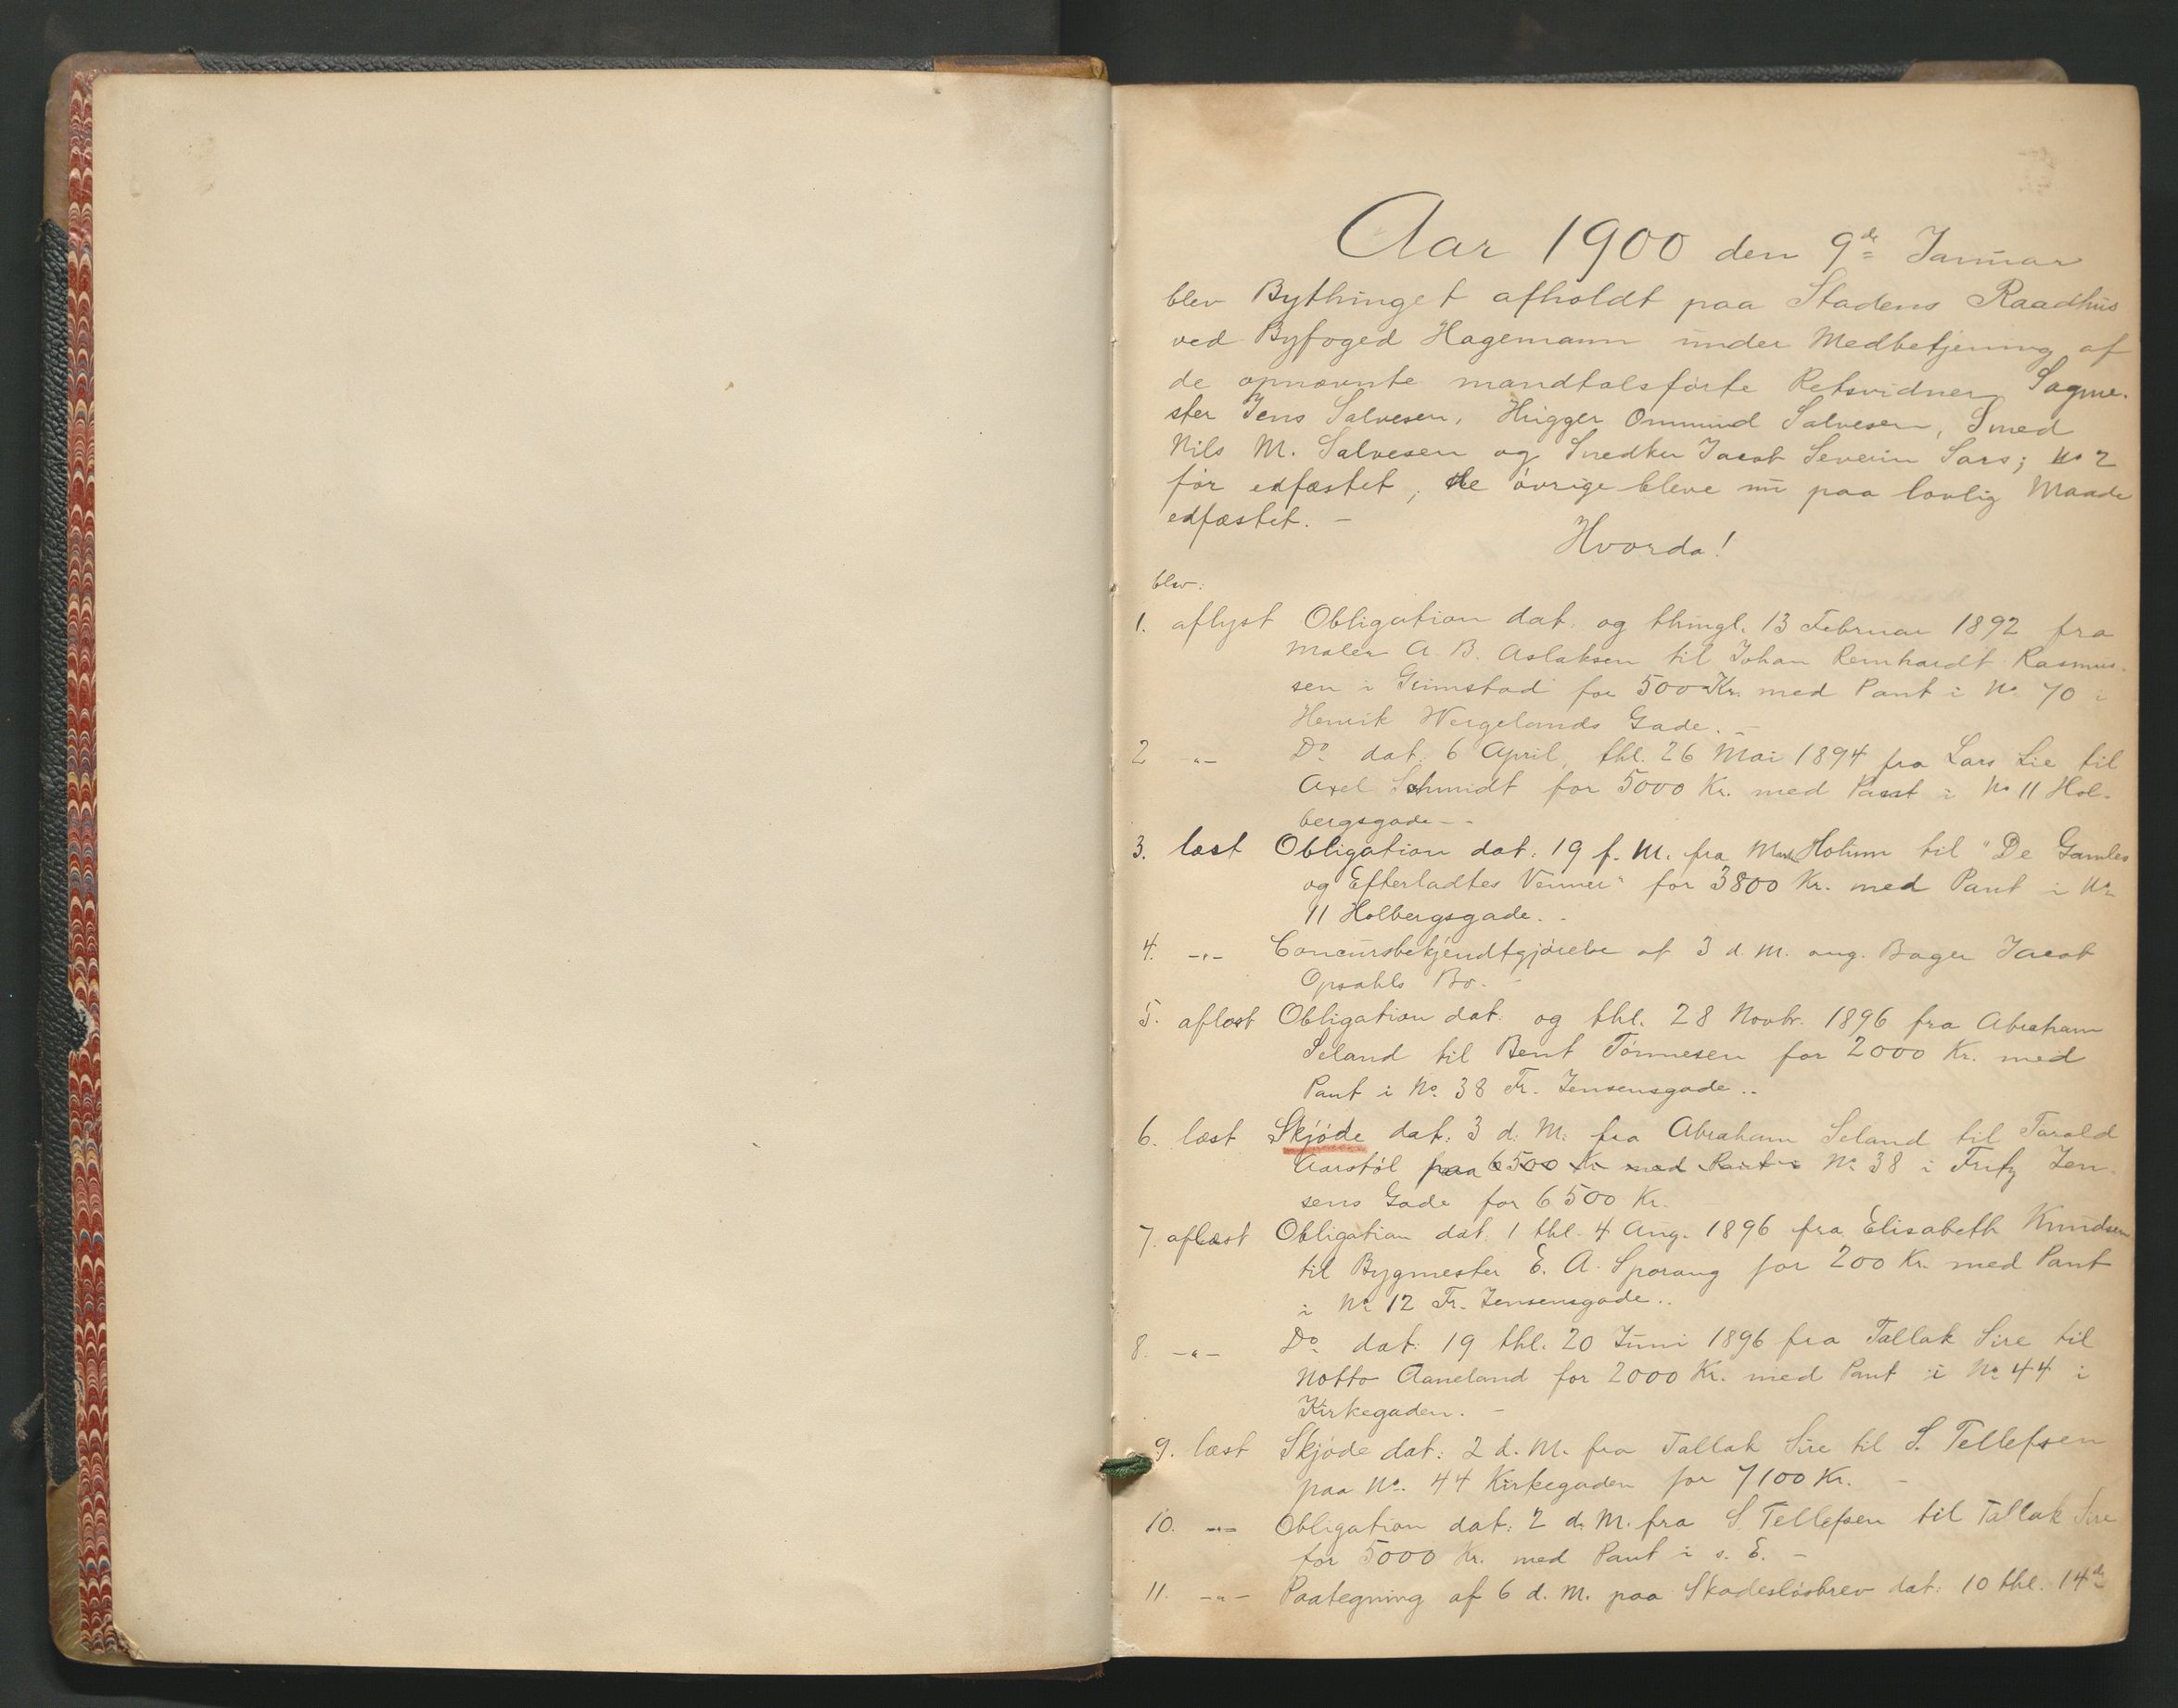 Aar 1900 den 9de Januar
blev Bythinget afholdt paa Stadens Raadhus
ved Byfoged Hagemann under Medbetjening af
de opnævnte mandtalsførte Retsvidner Sagme-
ster Jens Salvesen, Hugger Ommund Salvesen, Smed
Nils M. Salvesen og Snedker Jacob Severin Sars; No 2
før edfæstet, de øvrige bleve nu paa lovlig Maade
edfæstet. –
Hvorda!
blev:
1. aflyst Obligation dat. og thingl. 13 Februar 1892 fra
Maler A. B. Aslaksen til Johan Reinhardt Rasmus-
sen i Grimstad for 500 Kr. med Pant i No 70 i
Henrik Wergelands Gade. –
2 -"- Do dat. 6 April, thl. 26 Mai 1894 fra Lars Lie til
Axel Schmidt for 5000 Kr. med Pant i No 11 Hol-
bergsgade –
3. læst Obligation dat: 19 f. M. fra Holum til "De Gamles
og Efterladtes Venner" for 3800 Kr. med Pant i No
11 Holbergsgade. .
4. -"- Concursbekjendtgjørelse af 3 d. M. ang. Bager Jacob
Opsahls Bo. –
5. aflæst Obligation dat: og thl. 28 Novbr. 1896 fra Abraham
Seland til Bent Tønnesen for 2000 Kr. med
Pant i No. 38 Fr. Jensensgade ..
6. læst Skjøde dat: 3 d. M. fra Abraham Seland til Tarald
Aarstøl paa 6500 Kr med Pant i No 38 i Fritz Jen-
sens Gade for 6500 Kr.
7. aflæst Obligation dat. 1 thl. 4 Aug. 1896 fra Elisabeth Knudsen
til Bygmester E. A. Sporang for 200 Kr. med Pant
i No 12 Fr. Jensensgade ..
8. -"- Do dat: 19 thl. 20 Juni 1896 fra Tallak Sire til
Notto Aaneland for 2000 Kr. med Pant i No 44 i
Kirkegaden. –
9. læst Skjøde dat: 2 d. M. fra Tallak Sire til S. Tellefsen
paa No. 44 Kirkegaden for 7100 Kr. –
10. -"- Obligation dat: 2 d. M. fra S. Tellefsen til Tallak Sire
for 5000 Kr. med Pant i s. E. –
11. -"- Paategning af 6 d. M. paa Skadesløsbrev dat: 10 thl. 14de